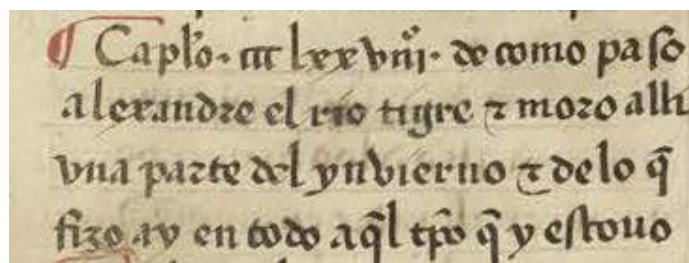 ¶ Caplo · ccc lxxviijº · de como paso
alexandre el rio tigre ⁊ moro alli
vna parte del ynvierno ⁊ de lo q̃
fizo ay en todo aq̃l tp̃o q̃ y estouo